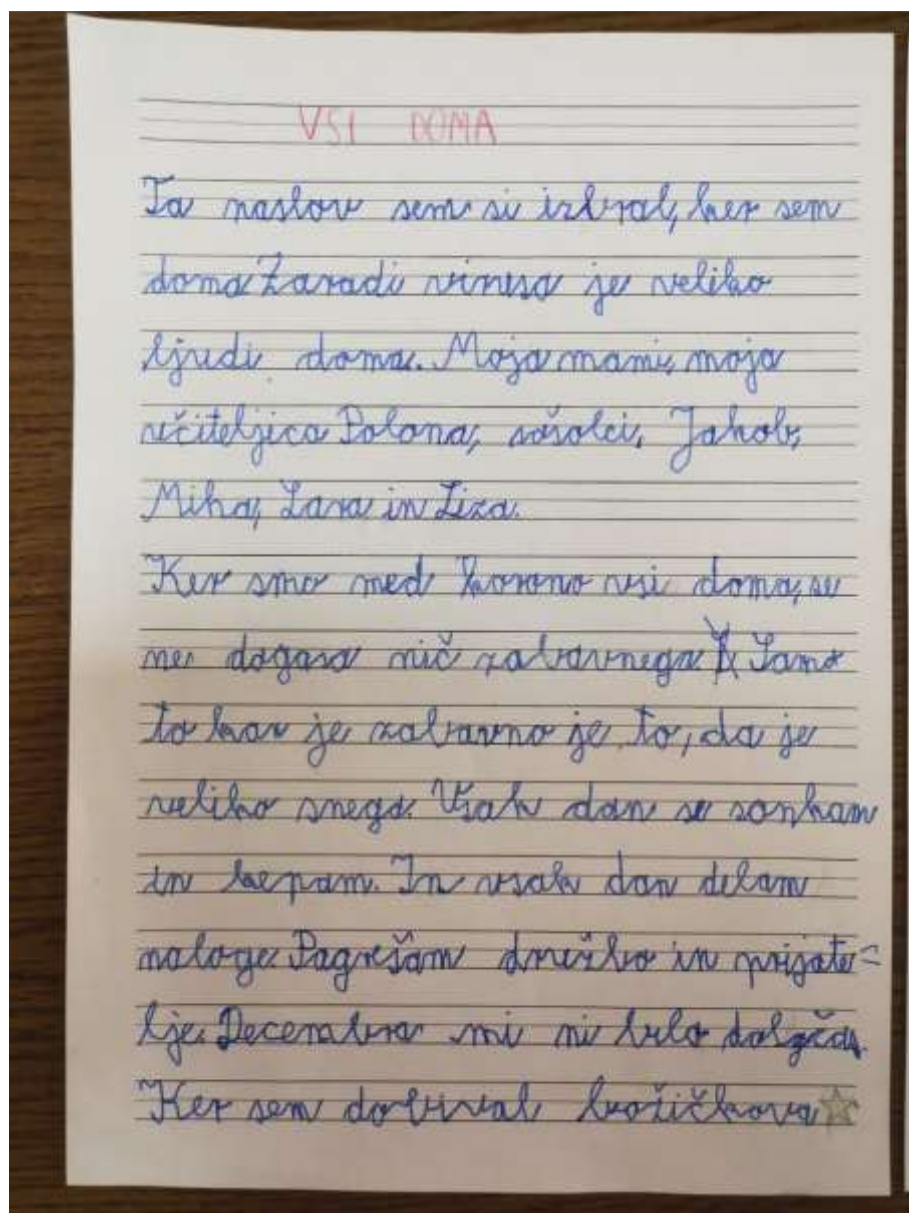 VSI DOMA
Ta naslov sem si izbral, ker sem
doma Zaradi virusa je veliko
ljudi doma. Moja mami, moja
učiteljica Polona, sošolci, Jakob,
Miha, Lara in Liza.
Ker smo med korono vsi doma, se
ne dogaja nič zabavnega Samo
to kar je zabavno je to, da je
veliko snega. Vsak dan se sankam
in kepam. In vsak dan delam
naloge. Pogrešam družbo in prijate=
lje. Decembra mi ni bilo dolgčas.
Ker sem dobival božičkova